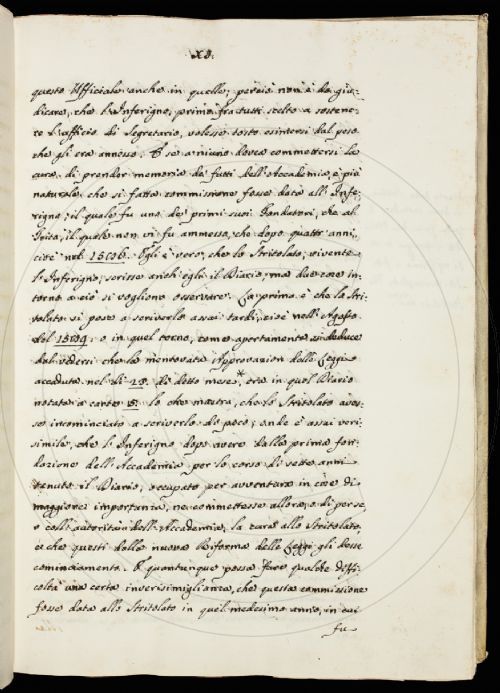 XI.
questo Uffiziale anche in quello; perciò non è da giu-
dicare, che l'Inferigno, primo fra tutti scelto a sostene-
re l'ufficio di Segretario, volesse tosto esimersi dal peso
che gli era annesso. E se a niuno dovea commettersi la
cura di prender memoria de' fatti dell'Accademia, è più
naturale che si fatta commissione fosse data all'Infe-
rigno; il quale fu uno de' primi suoi Fondatori, che al
il quale non vi fu ammesso, che dopo quattr'anni,
cioè nel 1586. Egli è vero, che lo Stritolato, vivente
l'Inferigno, scrisse anch'egli il Diario; ma due cose in-
torno a ciò si vogliono osservare. La prima è che lo Stri-
tolato si pose a scriverlo assai tardi, cioè nell'Agosto
del 1589. o in quel torno, come apertamente si deduce
dal vedersi che la mentovata Approvazion delle Leggi
accaduta nel dì 23. di detto mese*, era in quel Diario
notata a carte 5. lo che mostra, che lo Stritolato aves-
se incominciato a scriverlo da poco; onde è assai veri-
simile, che l'Inferigno dopo avere dalla prima fon-
dazione dell'Accademia per lo corso di sette anni
tenuto il Diario, occupato per avventura in cose di
maggiore importanza, ne commettesse allora, o di per se,
o coll'autorità dell'Accademia, la cura allo Stritolato,
e che questi dalla nuova Riforma delle Leggi gli desse
cominciamento. E quantunque possa fare qualche diffi-
coltà una certa inverisimiglianza, che questa commissione
fosse data allo Stritolato in quel medesimo anno, in cui
fu